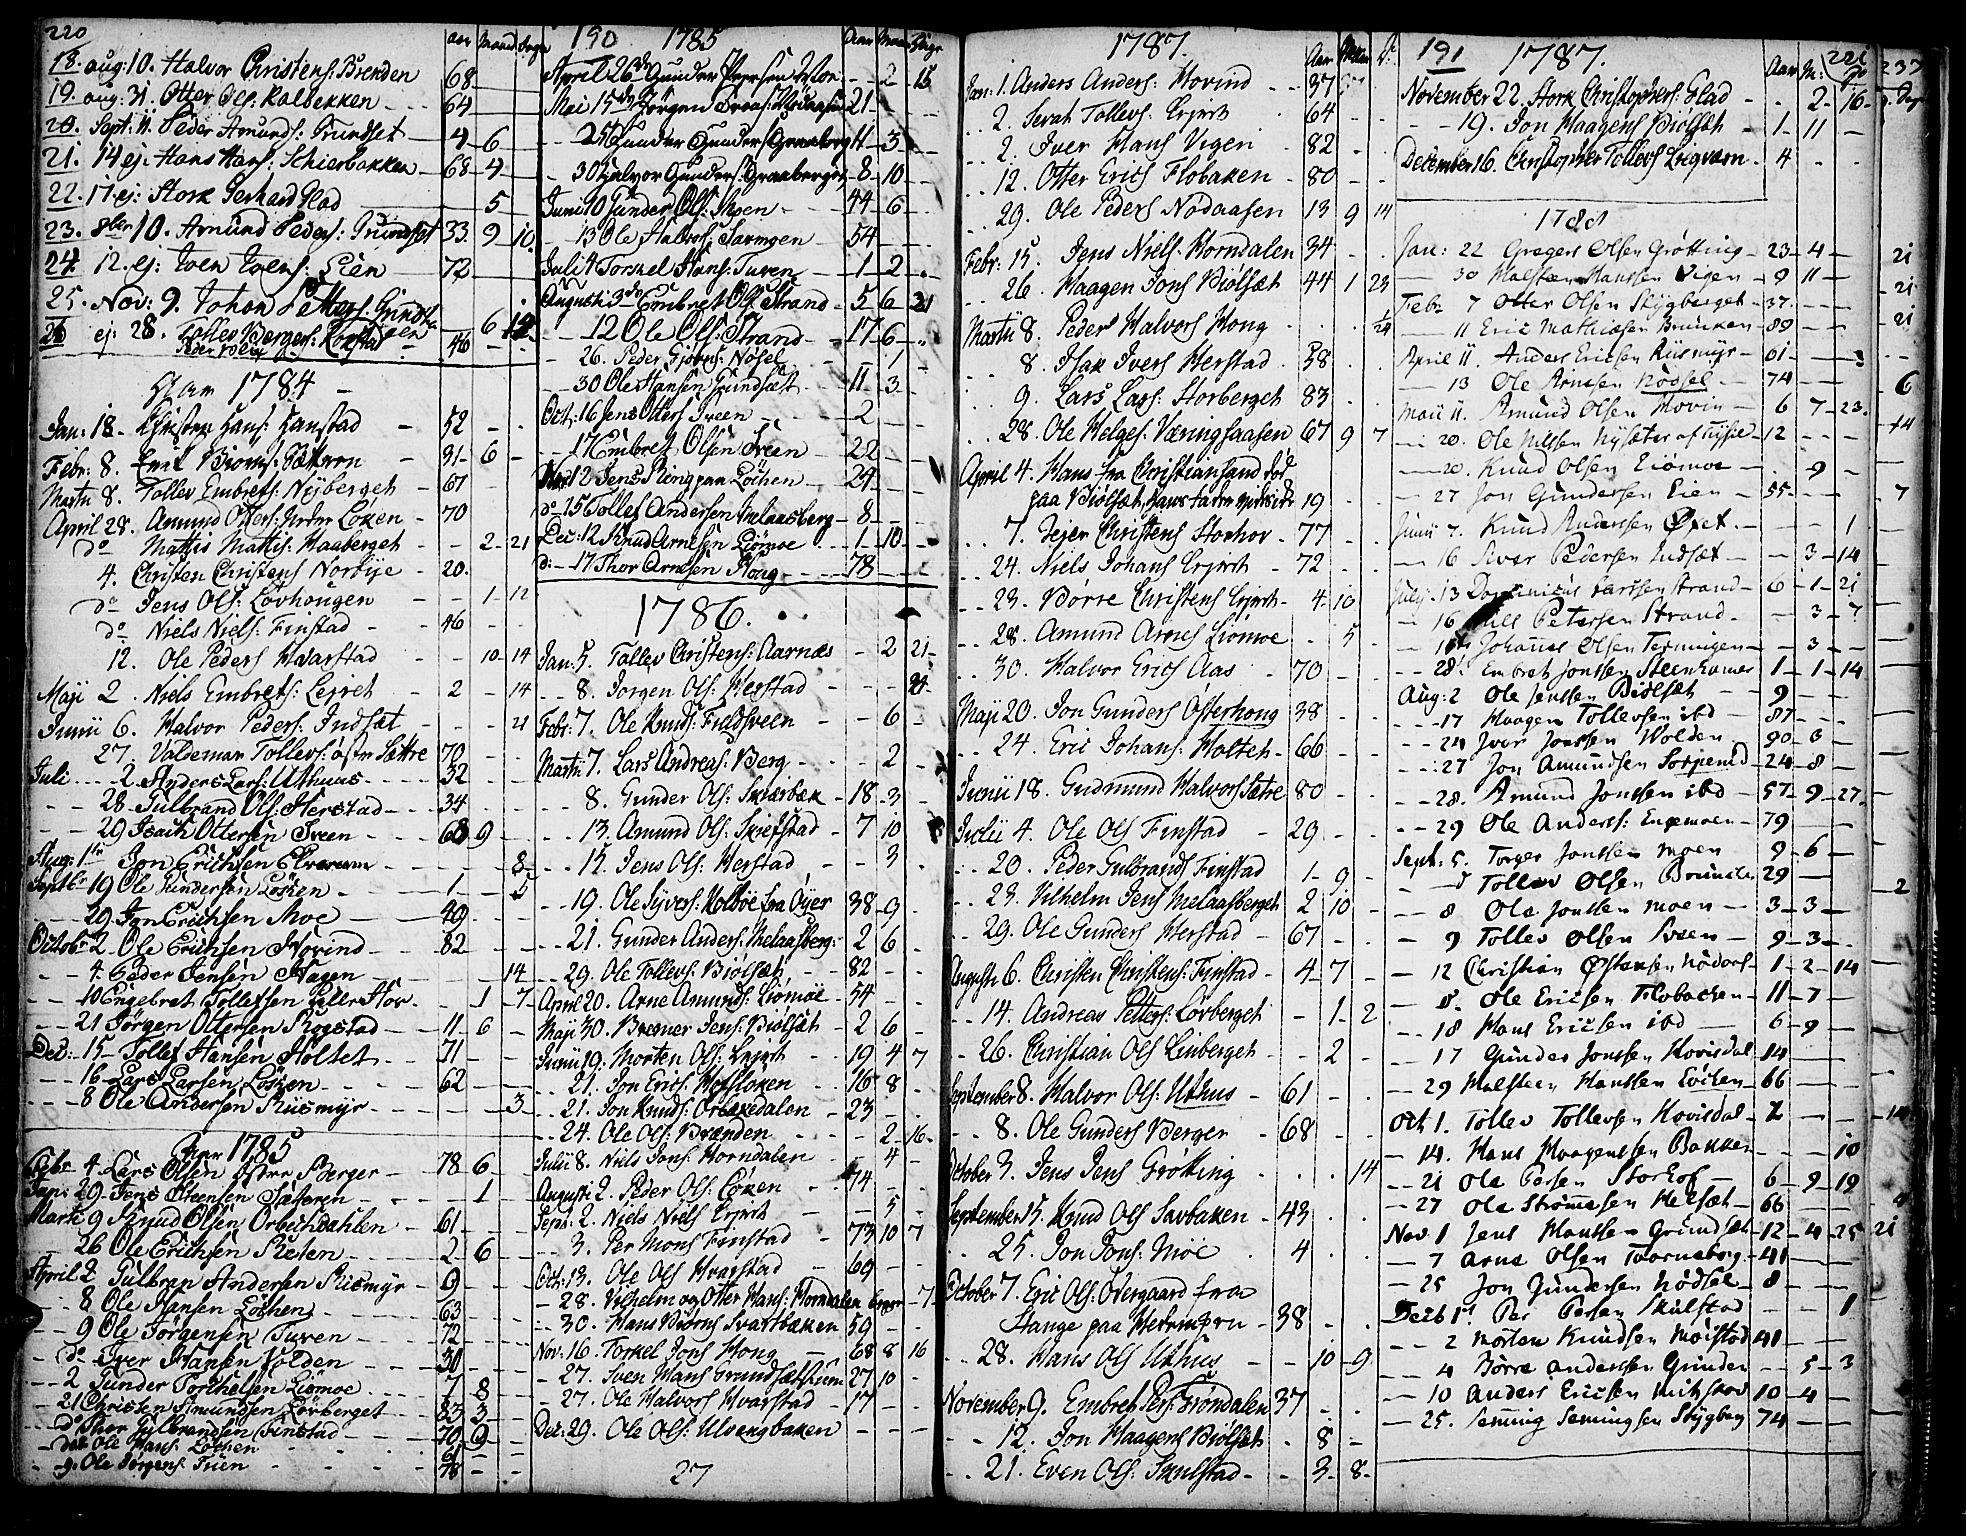 220
aar Maaned dage
18. aug: 10. Halvor Christens: Brenden 68
19. aug: 31. Otter Ols: Kolbekken 64
20. Sept: 11. Peder Amunds: Grundset 4 6
21. 14 ej: Hans Hans: Schierbakken 68 4
22. 17 ej: Stork Gerhard Glad 5
23. 8ber 10. Amund Peders: Grundset 33 9 10
24. 12. ej: Iven Ivens: Lien 72
25. Nov: 9. Johan Petters: Grindstuen 6 12
26 ej: 28. Tollev Bergers: Kokstad 46
Aar 1784
Jan: 18. Christen Hans: Hanstad 52
Febr: 8. Erik 31 6
Martii 8. Tollev Embrets: Nyberget 67
April 28. Amund Otters: Løken 70
do Mattis Mattis: Haaberget 2 21
4. Christen Christens Norbye 20
do Jens Ols: Løvhougen 1 12
do Niels Niels: Finstad 46
12. Ole Peders Kvarstad 10 14
Maji 2. Niels Embrets: Lejret 2 14
Junii 6. Halvor Peders: Indsæt 21
27. Valdemar Tollevs: Sættre 70
Juli 2. Anders Lars: Uthuus 32
28. Gulbrand Ols: Herstad 34
29 Isach Ottersen Sveen 68 9
Aug: 1 Jon Erichsen Elverum 8
Septbr 19 Ole Gundersen Løken 1 5
29 Jon Erichsen Moe 49
Octobr 2. Ole Erichsen Hovind 82
4. Peder Jensen Hagen 14
10 Engebret Tollefsen Hov 1 7
21 Jørgen Ottersen Rogstad 11 6
Dec: 15 Tollef Hansen Holtet 71
16 Lars Larsen Løsken 62
8 Ole Andersen Riismyr 3
Aar 1785
Febr 4 Lars Olsen Berger 78 6
Jan: 29 Jens Steensen Sæteren 1
Marti 9 Knud Olsen Orbechdahlen 61
26 Ole Erichsen Resen 2 6
April 2 Gulbran Andersen Riismyr 9
8 Ole Hansen Løchen 63
9 Ole Jørgensen Tuven 72
do Iver Hansen Volden 30
2 Gunder Torkhelsen Liømoe 7 8
21 Christen Amundsen Løvberget 83 3
do Thor Gulbrandsen Finstad 70 9
Ole Hans: Løchen 61
9. Ole Jørgens: Tuen 78
190 1785
Aar Maan Dage
April 26 Gunder Peersen 2 15
Mei 15 Jørgen Nødaasen 21
25 Gunder Gunders: Graaberget 4 3
30 Halvor Gunders: Graaberget 8 10
Juni 10 Gunder Ols: Moen 44 6
13 Ole Halvors: Savmoen 54
Juli 4 Torkel Hans: Tuven 1 2
Augusti 3 Embret Ols Strand 5 6 21
12 Ole Ols: Strand 17 6
26. Peder Gjørns: Nøsel 1
30 Ole Hansen Grundsæt 11 3
Oct: 16 Jens Otters Sveen 2
17 Embret Olsen Sveen 22
12 Jens Løchen 29
do 15 Tollef Andersen Melaasberg 8
Dec: 12 Knud Arnesen Liømoe 1 10
d: 17 Thor Arnesen Houg 78
1786.
Jan: 5. Tollev Christens: Aarnæs 2 21
8. Jorgen Ols: Herstad 24
Febr: 7. Ole Knuds: Fieldsveen 6
Martii 7. Lars Andreas: Berg 2
8. Gunder Ols: Skiærbæk 18 3
13. Amund Ols: Skiefstad 7 10
15. Jens Ols: Herstad 3
19. Ole Syvers: Holboe fra Øyer 38 9
21. Gunder Anders: Melaasberg: 2 6
29. Ole Tollevs: Biølsæt 82
April 20. Arne Amunds: Liømoe 54
Maji 30. Berner Jens: Biølsæt 2 6
Junii 19. Morten Ols: Lejret 19 4 7
21. Jon Erics: Hofsløken 16 8
21. Jon Knuds: Orbækdalen 23
24. Ole Ols: Brænden 2 16
Julii 8. Niels Jons: Horndalen 4
Augusti 2. Peder Ols: Løken 74
Sept: 2. Niels Niels Lejret 5
3. Per Mons Finstad 73 10 7
Oct: 13. Ole Ols Kvarstad 69
28. Vilhelm og Otter Hans: Horndalen 7
30. Hans Biørns Svartbækken 59
Nov: 16. Torkel Jons Houg 68 8 16
27. Sven Hans Grundsætstuen 27 10
27. Ole Halvors Kvarstad 17
Dec: 29. Ole Ols: Ulvangbaken
27
1787.
Aar Maan D:
Jan: 1. Anders Anders: Hovind 37
2. Sivat Tollevs: Lejret 64
2. Iver Hans Vigen 82
12. Otter Erics Flobaken 80
29. Ole Peders Nødaasen 13 9 14
Febr: 15. Jens Niels: Horndalen 34
26. Haagen Jons Biølsæt 44 1 23
Martii 8. Peder Halvors Houg 1/24
8. Isak Ivers Herstad 38
9. Lars Lars: Storberget 83
28. Ole Helges: Væringsaasen 67 9 7
April 4. Hans fra Christiansand død
paa Biølsæt, 19
7. Jejer Christens Storhov 77
24. Niels Johans Lejret 72
23. Børre Christens Lejret 4 10
28. Amund Arnes Liømoe 5
30. Halvor Erics Aas 70
Maji 20. Jon Gunders Østerhoug 38
24. Eric Johans: Holteh 66
Junii 18. Gudmund Halvors Sætre 80
Julii 4. Ole Ols Finstad 29
20. Peder Gulbrands Finstad 1 9
23. Vilhelm Jens Melaasberget 2 10
29. Ole Gunders Herstad 67
Augusti 6. Christen Christens: Finstad 4 7
14. Andreas Petters: Løvberget 1 2
26. Christian Ols Linberget 2
September 8. Halvor Ols: Uthus 61
8. Ole Gunders Berger 68
October 3. Jens Jens Grøtting 14
September 15. Knud Ols Savbaken 43
25. Jon Jons: Moe 4
October 7. Eric Ols: Overgaard fra
Stange paa 38
28. Hans Ols Uthus 10 9
November 9. Embret Pers: Grøndalen 37
12. Jon Haagens Biølsæt 8
21. Even Ols: Skulstad 3 8
191 1787. 221
Aar M: D
November 22. Stork Christophers: Glad 2 16
19. Jon Haagens Biølsæt 1 11
December 16. Christopher Tollevs Leigvam 4
1788
Jan: 22 Gregers Olsen Grøtting 23 4
30 Halsten Hanssen Vigen 9 11
Feb: 7 Otter Olsen Skygberget 37
11 Eric Mathiæsen Brunken 89
April 11. Anders Ericsen Riismyr 61 3
13 Ole Arnesen Nødsel 74
Maii 11. Amund Olsen Hovin 6 7 23
20. Ole Nilsen Nysæter af 12
20. Knud Olsen Liømoe 9
27 Jon Gundersen Lien 55
Junii 7. Knud Anderssen Øset 1
16 Iver Pedersen Indsæt 3 14
Julij 13 Dominicus Larssen Strand 6 1 21
16 Nils Petersen Strand 3 7
16 Johannes Olsen Terningen 3
28. Embret Jonssen Steenhamer 1 1 14
Aug: 2 Ole Jenssen Biølsæt 9
17 Haagen Tollevsen ibd 87
24 Iver Jonssen Wolden 90 3
27 Jon Amundsen Sorpenid 24 8
28. Amund Jonssen ibd 57 9 27
29 Ole Anderss: Engemoen 79
Sept: 5. Torger Jonssen Moen 9 6
Tollev Olsen Brunken 29
8 Ole Jonssen Moen 3 3
9 Tollev Olsen Sveen 9 3
12 Christian Østensen Nødaas 1 2 14
8. Ole Ericsen Flobachen 11 7
18 Hans Ericsen ibd 6 9
17 Gunder Jonssen Hovisdal 14
29 Halsteen Hanssen Løcken 66
Oct 1. Tollev Tollevsen Hovisdal 7
14. Hans Haagenssen Bakken 10
21 Ole Persen Storhof 6 9 19
27 Ole Strømssen Helsæt 66
Nov. 1 Jens Hanssen Grundset 12 4 25
7 Arne Olsen Taarneberg 41
25 Jon Gundersen Nødsel 8
Decb 1. Per Persen Skulstad 1
2 Morten Knudsen Moistad 41
4 Børre Anderssen Grinden 5 3
10 Anders Ericsen Mitskov 10 4
25. Seming Semingsen Skygberg 74